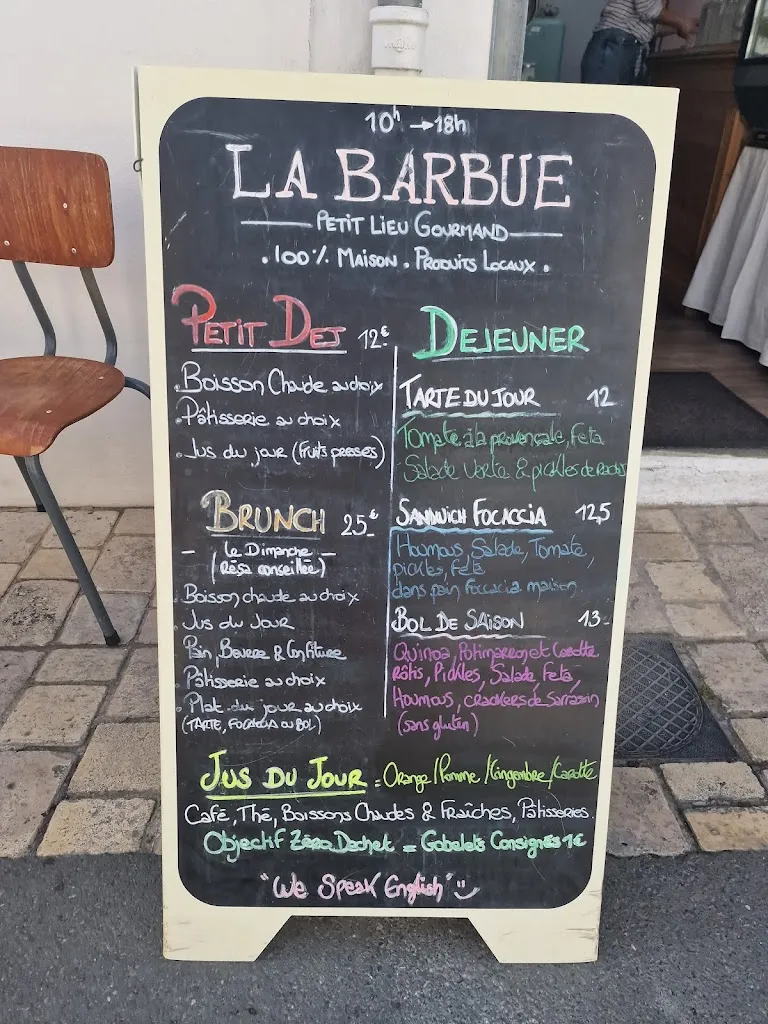 10h → 18h
LA BARBUE
PETIT LIEU GOURMAND
. 100% MAISON . PRODUITS LOCAUX .
PETIT DEJ 12.€
. Boisson Chaude au choix
. Pâtisserie au choix
. Jus du jour (fruits pressés)
BRUNCH 25.€
- le Dimanche -
(Résa conseillée)
. Boisson chaude au choix
. Jus du Jour
. Pain, Beurre & Confiture
. Pâtisserie au choix
. Plat du jour au choix
(TARTE, FOCACCIA OU BOL)
DEJEUNER
TARTE DU JOUR 12
Tomate à la provençale, Feta
Salade Verte & pickles de Radis
SANDWICH FOCACCIA 12,5
Houmous, Salade, Tomate,
pickles, Feta
dans pain Foccacia maison
BOL DE SAISON 13.
Quinoa, Potimarron et Carotte
Rôtis, Pickles, Salade, Feta,
Houmous, crackers de Sarrasin
(sans gluten)
JUS DU JOUR = Orange/Pomme/Gingembre/Carotte
Café, Thé, Boissons Chaudes & Fraîches, Pâtisseries.
Objectif Zéro Dechet = Gobelets Consignés 1€
"We Speak English" :)